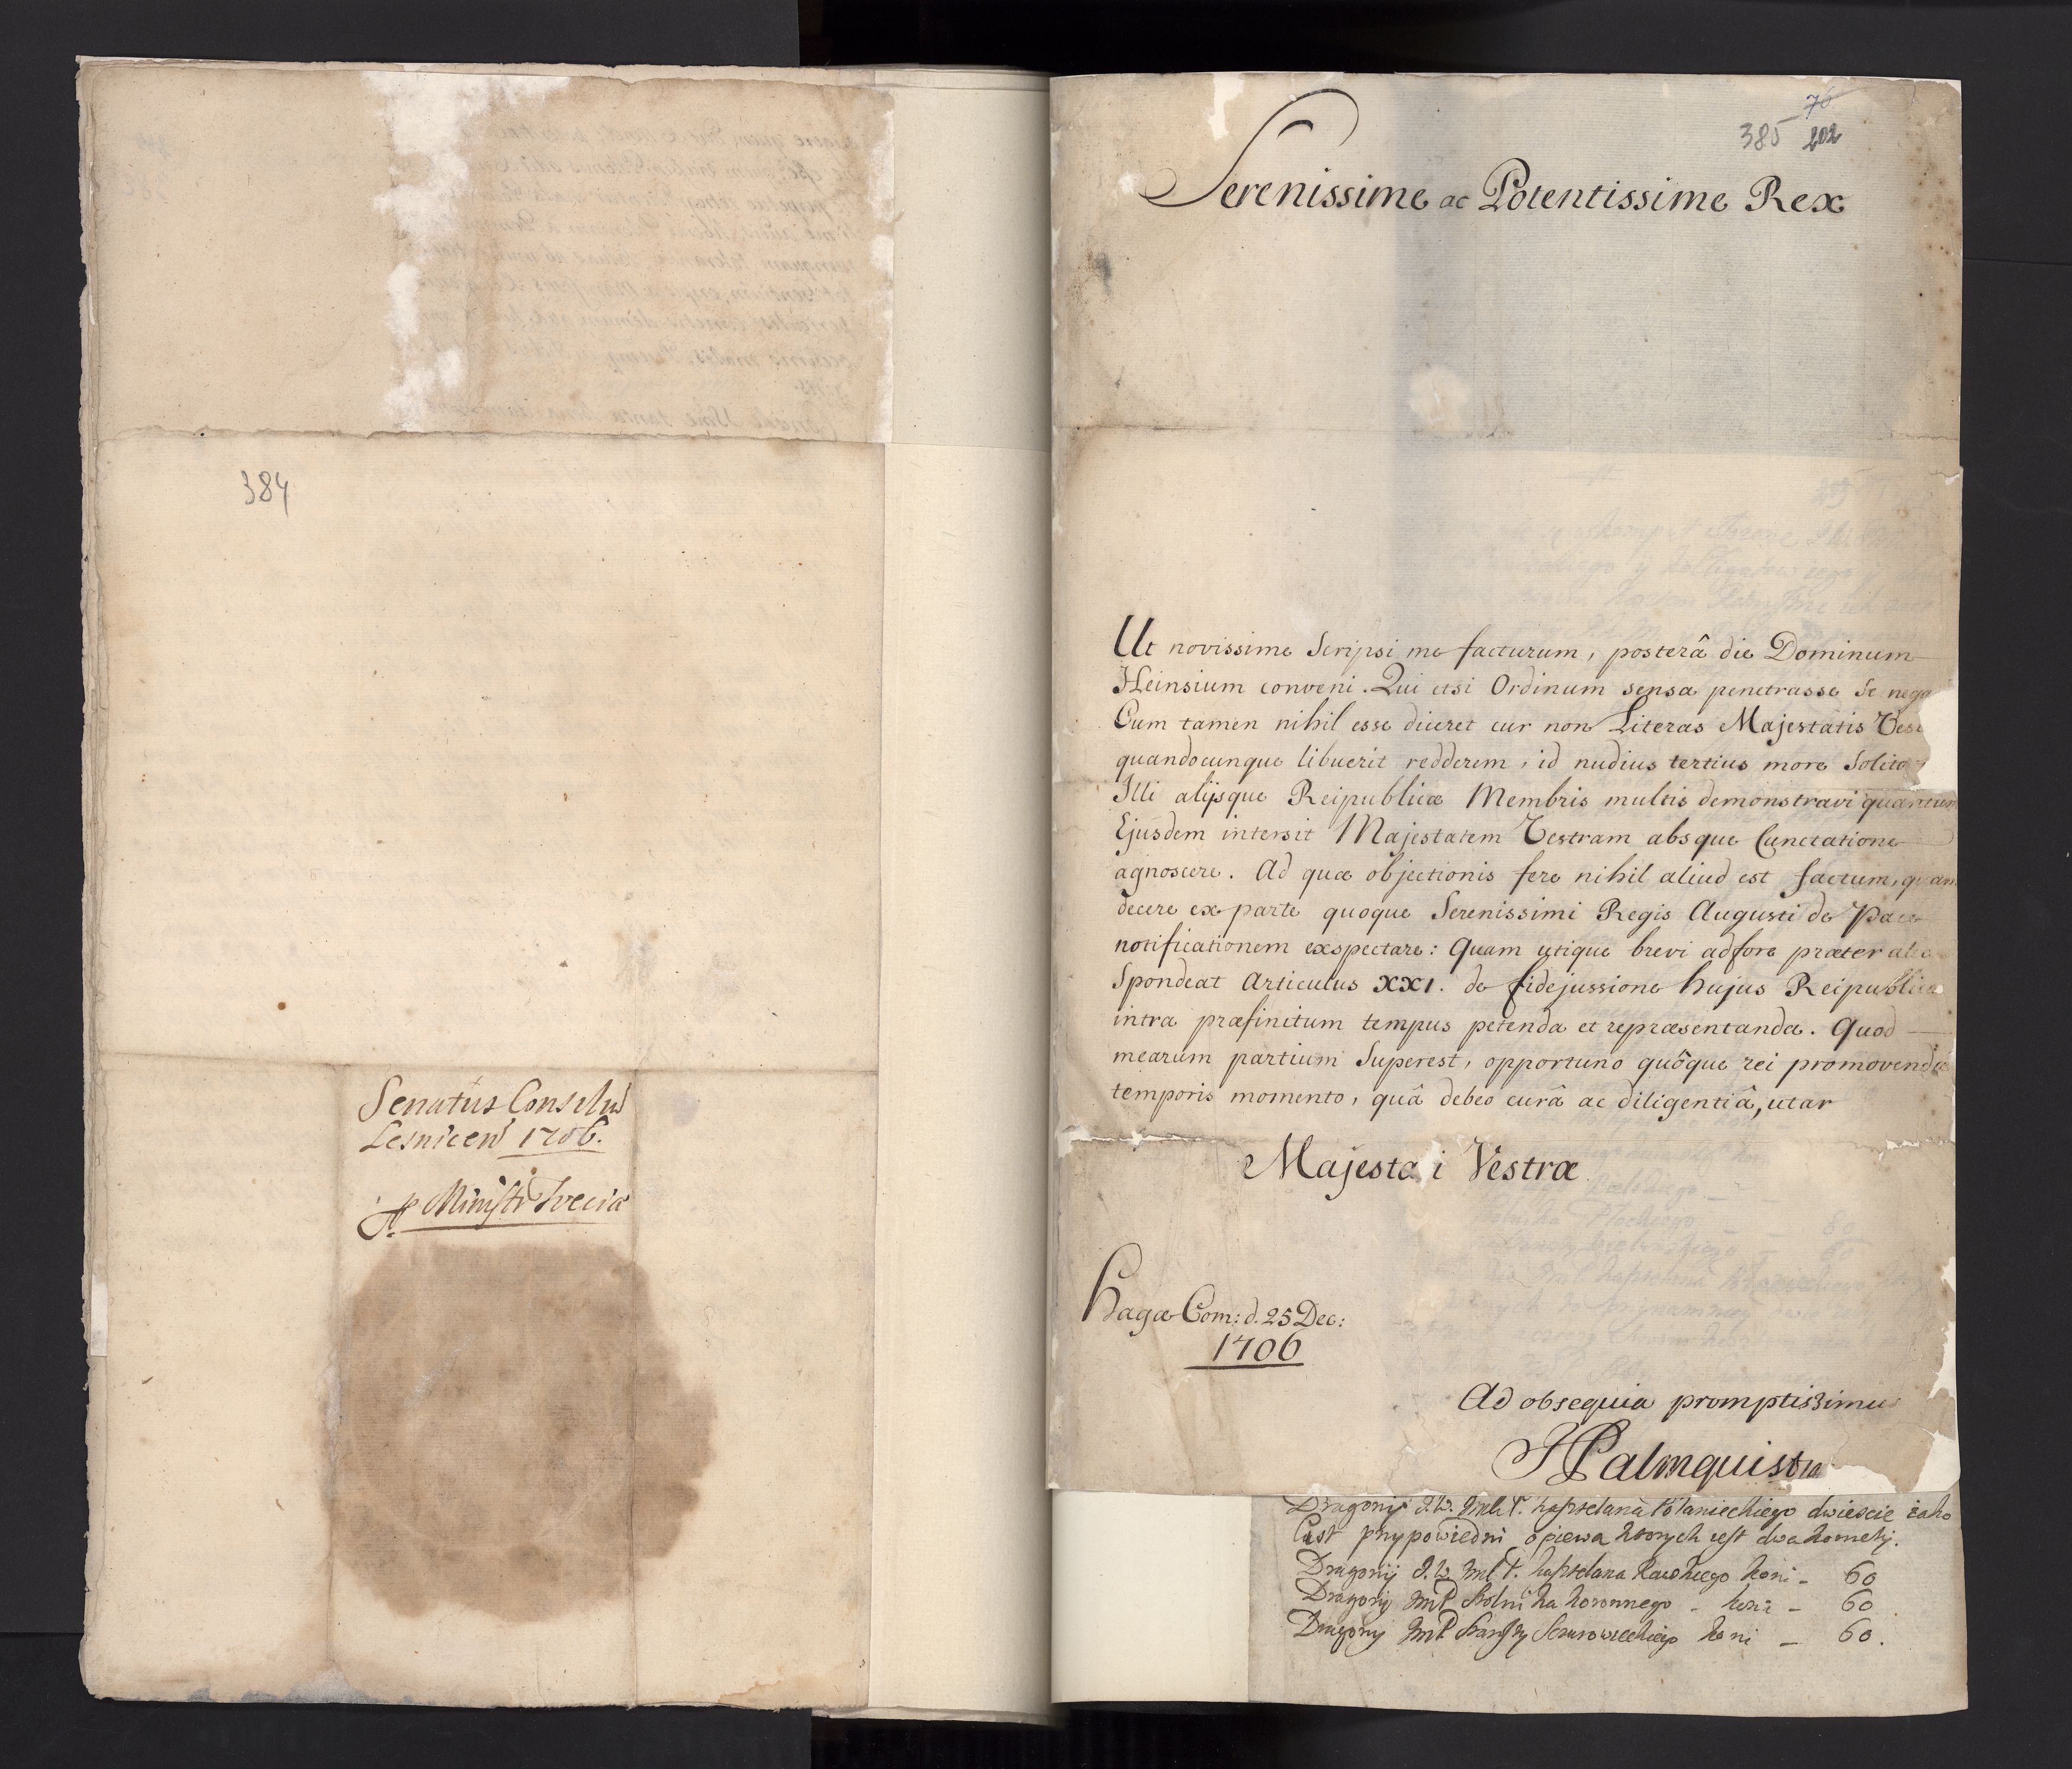 384
Senatus Consilm
Lesnicen 1706.
Ministri Sveciæ
76
385 202
Serenissime ac Potentissime Rex
Ut novissime Scripsi me facturum, posterâ die Dominum
Heinsium conveni. Qui etsi Ordinum sensa penetrasse Se nega
Cum tamen nihil esse diceret cur non Literas Majestatis Vest
quandocunque libuerit redderem, id nudius tertius more Solito
Illi alijsque Reipublicæ Membris multis demonstravi quantum
Ejusdem intersit Majestatem Vestram absque Cunctatione
agnoscere. Ad quæ objectionis fere nihil aliud est factum, quam
decere ex parte quoque Serenissimi Regis Augusti de Pace
notificationem exspectare: Quam utique brevi adfore præter alia
Spondeat Articulus XXI. de fidejussione hujus Reipublicæ
intra præfinitum tempus petenda et repræsentanda. Quod
mearum partium Superest, opportuno quôque rei promovendæ
temporis momento, quâ debeo curâ ac diligentiâ, utar
Majesta i Vestræ
Hagæ Com: d. 25 Dec:
1706
Ad obsequia promptissimus
JPalmquist
Dragonij J.W. Kasztelana Połanieckiego dwiescie iako
List przypowiedni opiewa ktorych iest dwa kornety.
Dragonij J.W. Kasztelana Rawskiego koni - 60
Dragonij Stolnika Koronnego - koni - 60
Dragonij koni - 60.